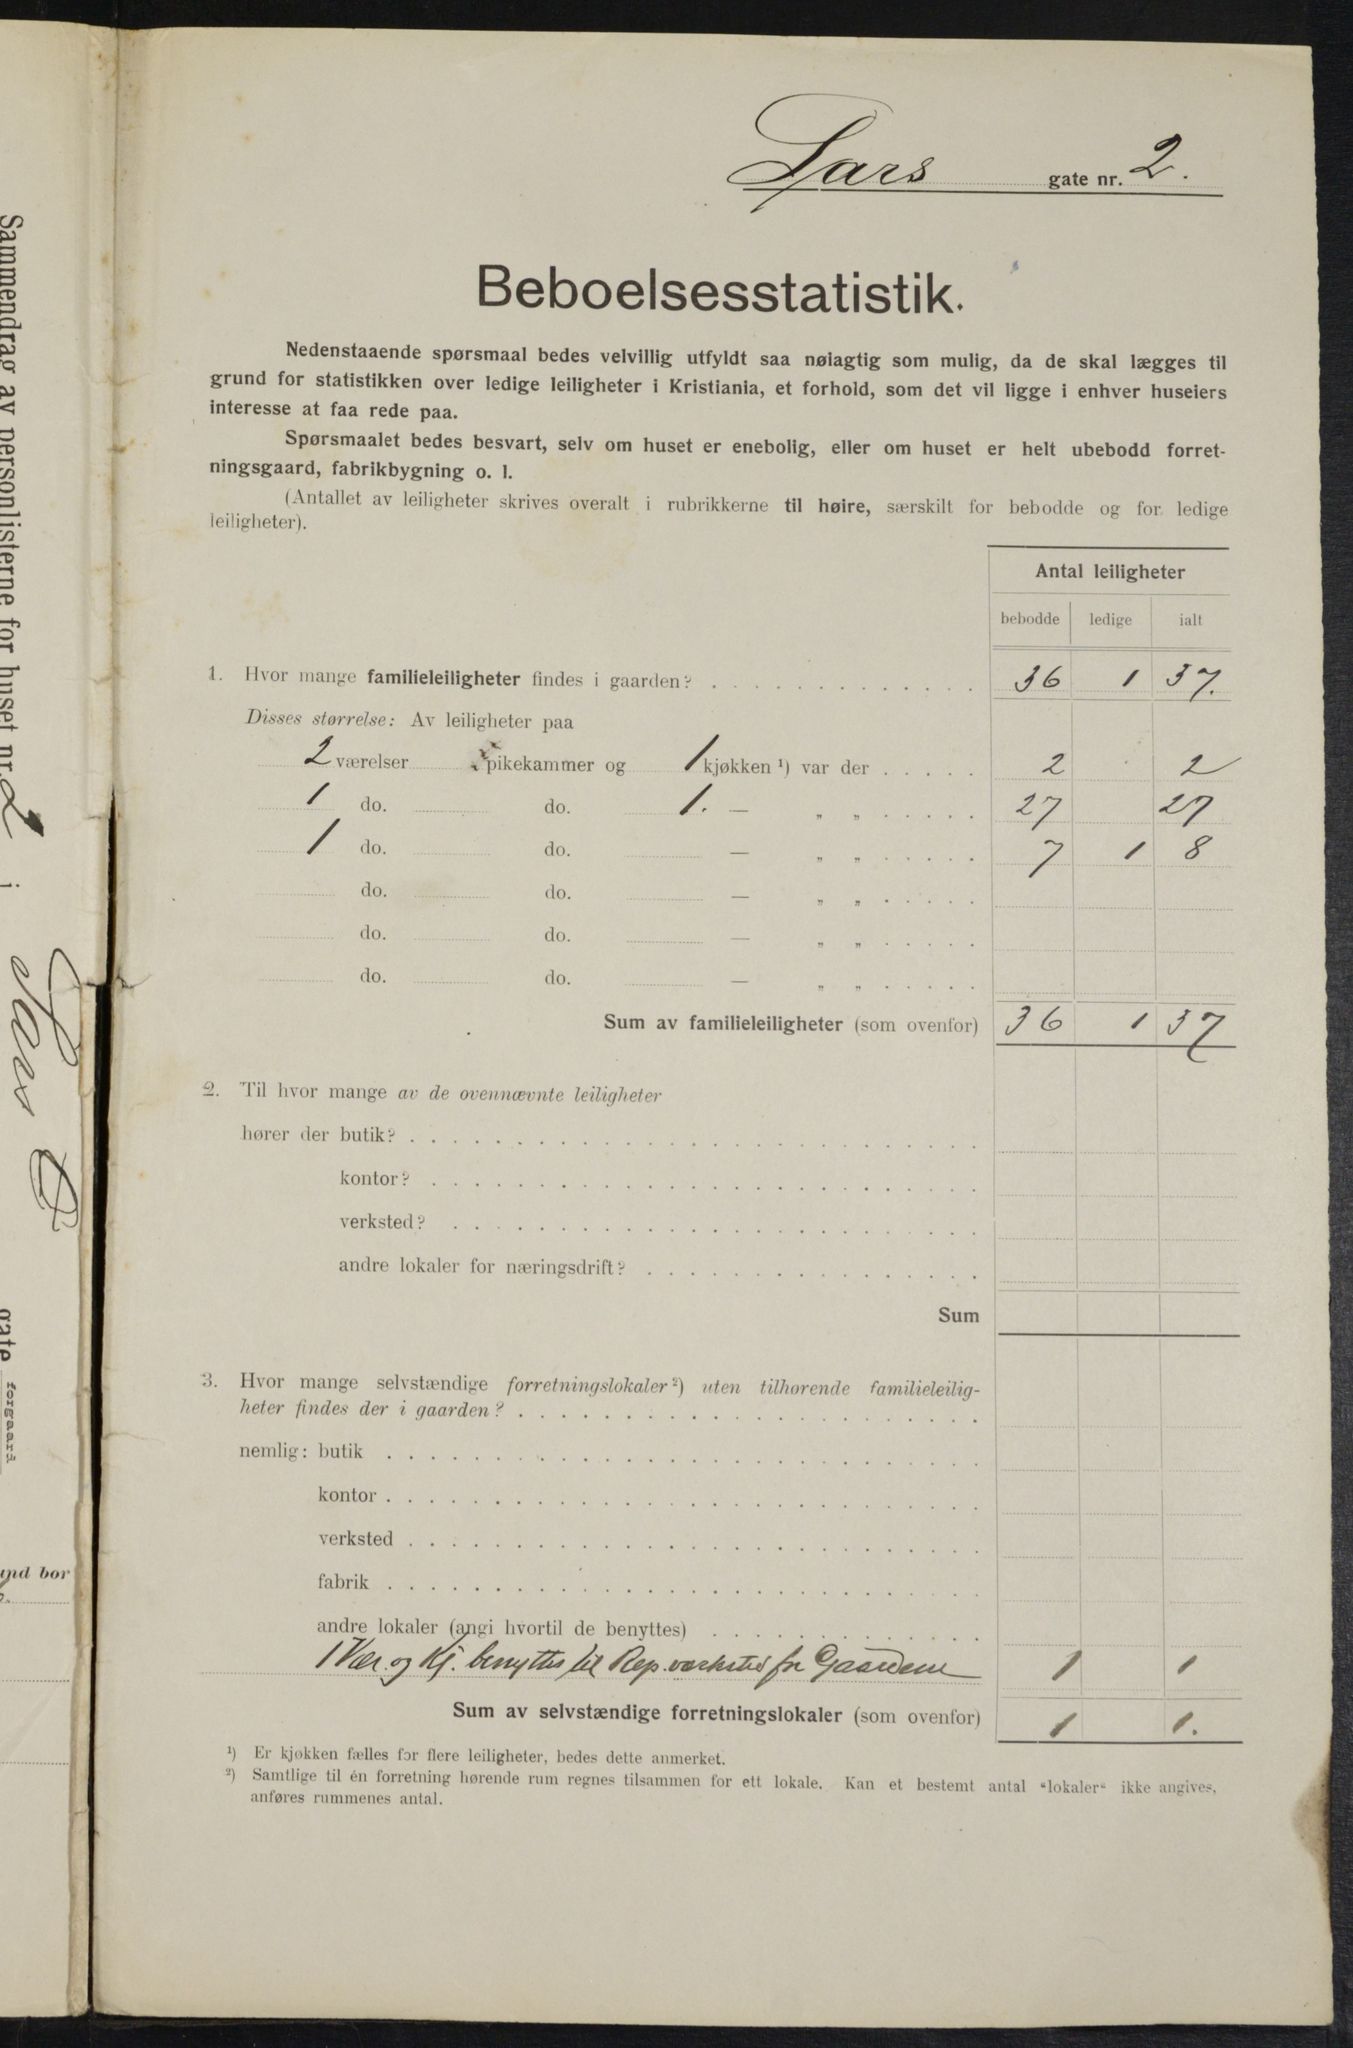 Lars gate nr. 2.
Beboelsesstatistik.
Nedenstaaende spørsmaal bedes velvillig utfyldt saa nøiagtig som mulig, da de skal lægges til
grund for statistikken over ledige leiligheter i Kristiania, et forhold, som det vil ligge i enhver huseiers
interesse at faa rede paa.
Spørsmaalet bedes besvart, selv om huset er enebolig, eller om huset er helt ubebodd forret-
ningsgaard, fabrikbygning o. l.
(Antallet av leiligheter skrives overalt i rubrikkerne til høire, særskilt for bebodde og for ledige
leiligheter).
Antal leiligheter
bebodde ledige ialt
1. Hvor mange familieleiligheter findes i gaarden? 36 1 37.
Disses størrelse: Av leiligheter paa
2 værelser pikekammer og 1 kjøkken ¹) var der 2 2
1 do. do. 1. — „ „ 27 27
1 do. do. — „ „ 7 1 8
do. do. — „ „
do. do. — „ „
do. do. — „ „
Sum av familieleiligheter (som ovenfor) 36 1 37
2. Til hvor mange av de ovennævnte leiligheter
hører der butik?
kontor?
verksted?
andre lokaler for næringsdrift?
Sum
3. Hvor mange selvstændige forretningslokaler ²) uten tilhørende familieleilig-
heter findes der i gaarden?
nemlig: butik
kontor
verksted
fabrik
andre lokaler (angi hvortil de benyttes)
1 Vær. og Kj. benyttes til Rep. værksted for Gaardene 1 1
Sum av selvstændige forretningslokaler (som ovenfor) 1 1.
¹) Er kjøkken fælles for flere leiligheter, bedes dette anmerket.
²) Samtlige til én forretning hørende rum regnes tilsammen for ett lokale. Kan et bestemt antal "lokaler" ikke angives,
anføres rummenes antal.
Sammendrag av personlisterne for huset nr. 2 i Lars gate
forgaard
und bor